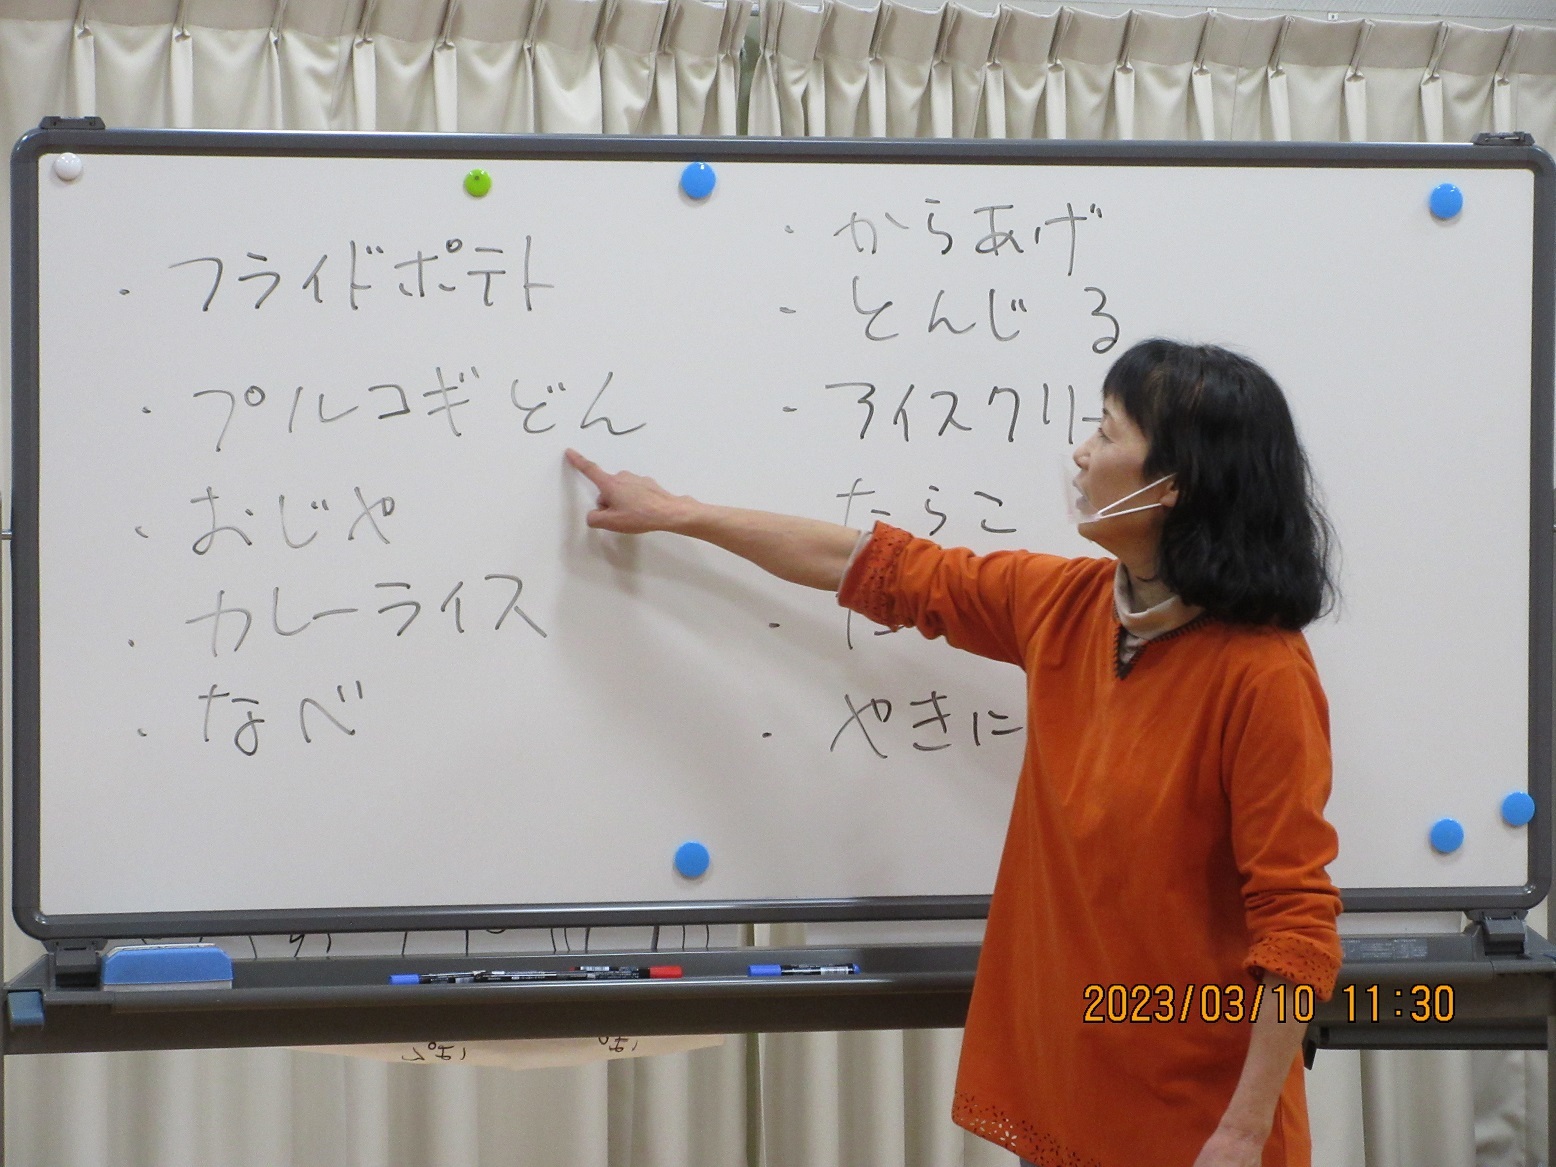 ・フライドポテト
・プルコギどん
・おじや
・カレーライス
・なべ
・からあげ
・とんじる
・アイスクリー
たらこ
・やきに
2023/03/10 11:30